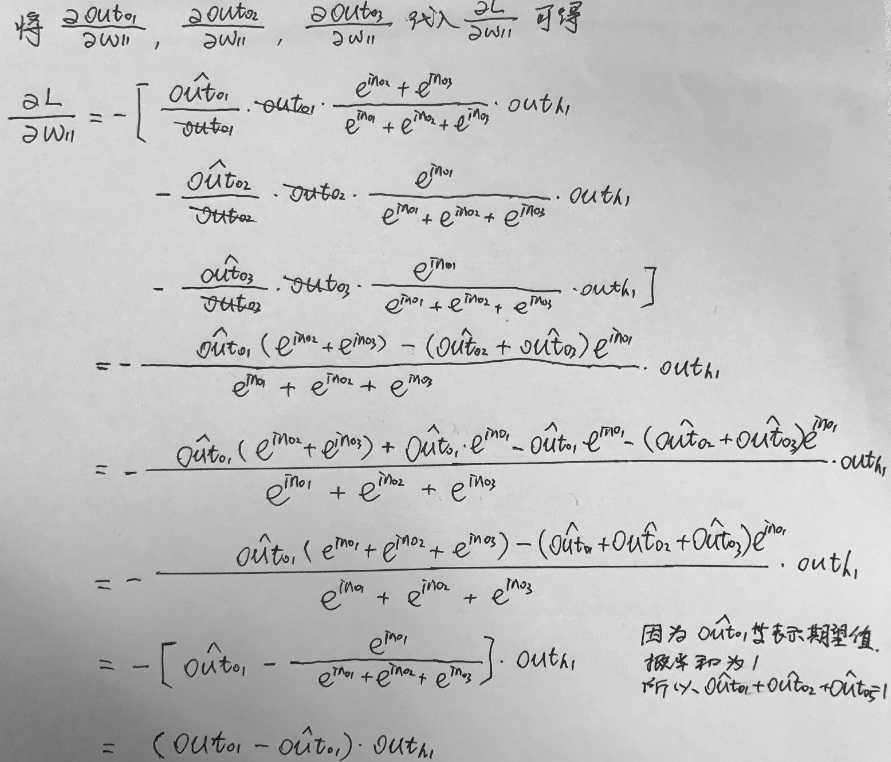 将 ∂out_{o1}/∂w_{11}, ∂out_{o2}/∂w_{11}, ∂out_{o3}/∂w_{11} 代入 ∂L/∂w_{11} 可得
∂L/∂w_{11} = -[ \hat{out}_{o1}/out_{o1} · out_{o1} · (e^{in_{o2}} + e^{in_{o3}})/(e^{in_{o1}} + e^{in_{o2}} + e^{in_{o3}}) · out_{h1}
- \hat{out}_{o2}/out_{o2} · out_{o2} · e^{in_{o1}}/(e^{in_{o1}} + e^{in_{o2}} + e^{in_{o3}}) · out_{h1}
- \hat{out}_{o3}/out_{o3} · out_{o3} · e^{in_{o1}}/(e^{in_{o1}} + e^{in_{o2}} + e^{in_{o3}}) · out_{h1} ]
= - (\hat{out}_{o1}(e^{in_{o2}} + e^{in_{o3}}) - (\hat{out}_{o2} + \hat{out}_{o3})e^{in_{o1}})/(e^{in_{o1}} + e^{in_{o2}} + e^{in_{o3}}) · out_{h1}
= - (\hat{out}_{o1}(e^{in_{o2}} + e^{in_{o3}}) + \hat{out}_{o1}·e^{in_{o1}} - \hat{out}_{o1}·e^{in_{o1}} - (\hat{out}_{o2} + \hat{out}_{o3})e^{in_{o1}})/(e^{in_{o1}} + e^{in_{o2}} + e^{in_{o3}}) · out_{h1}
= - (\hat{out}_{o1}(e^{in_{o1}} + e^{in_{o2}} + e^{in_{o3}}) - (\hat{out}_{o1} + \hat{out}_{o2} + \hat{out}_{o3})e^{in_{o1}})/(e^{in_{o1}} + e^{in_{o2}} + e^{in_{o3}}) · out_{h1}
= -[ \hat{out}_{o1} - e^{in_{o1}}/(e^{in_{o1}} + e^{in_{o2}} + e^{in_{o3}}) ] · out_{h1}
因为 \hat{out}_{o1} 等表示期望值.
概率和为1
所以、\hat{out}_{o1} + \hat{out}_{o2} + \hat{out}_{o3} = 1
= (out_{o1} - \hat{out}_{o1}) · out_{h1}